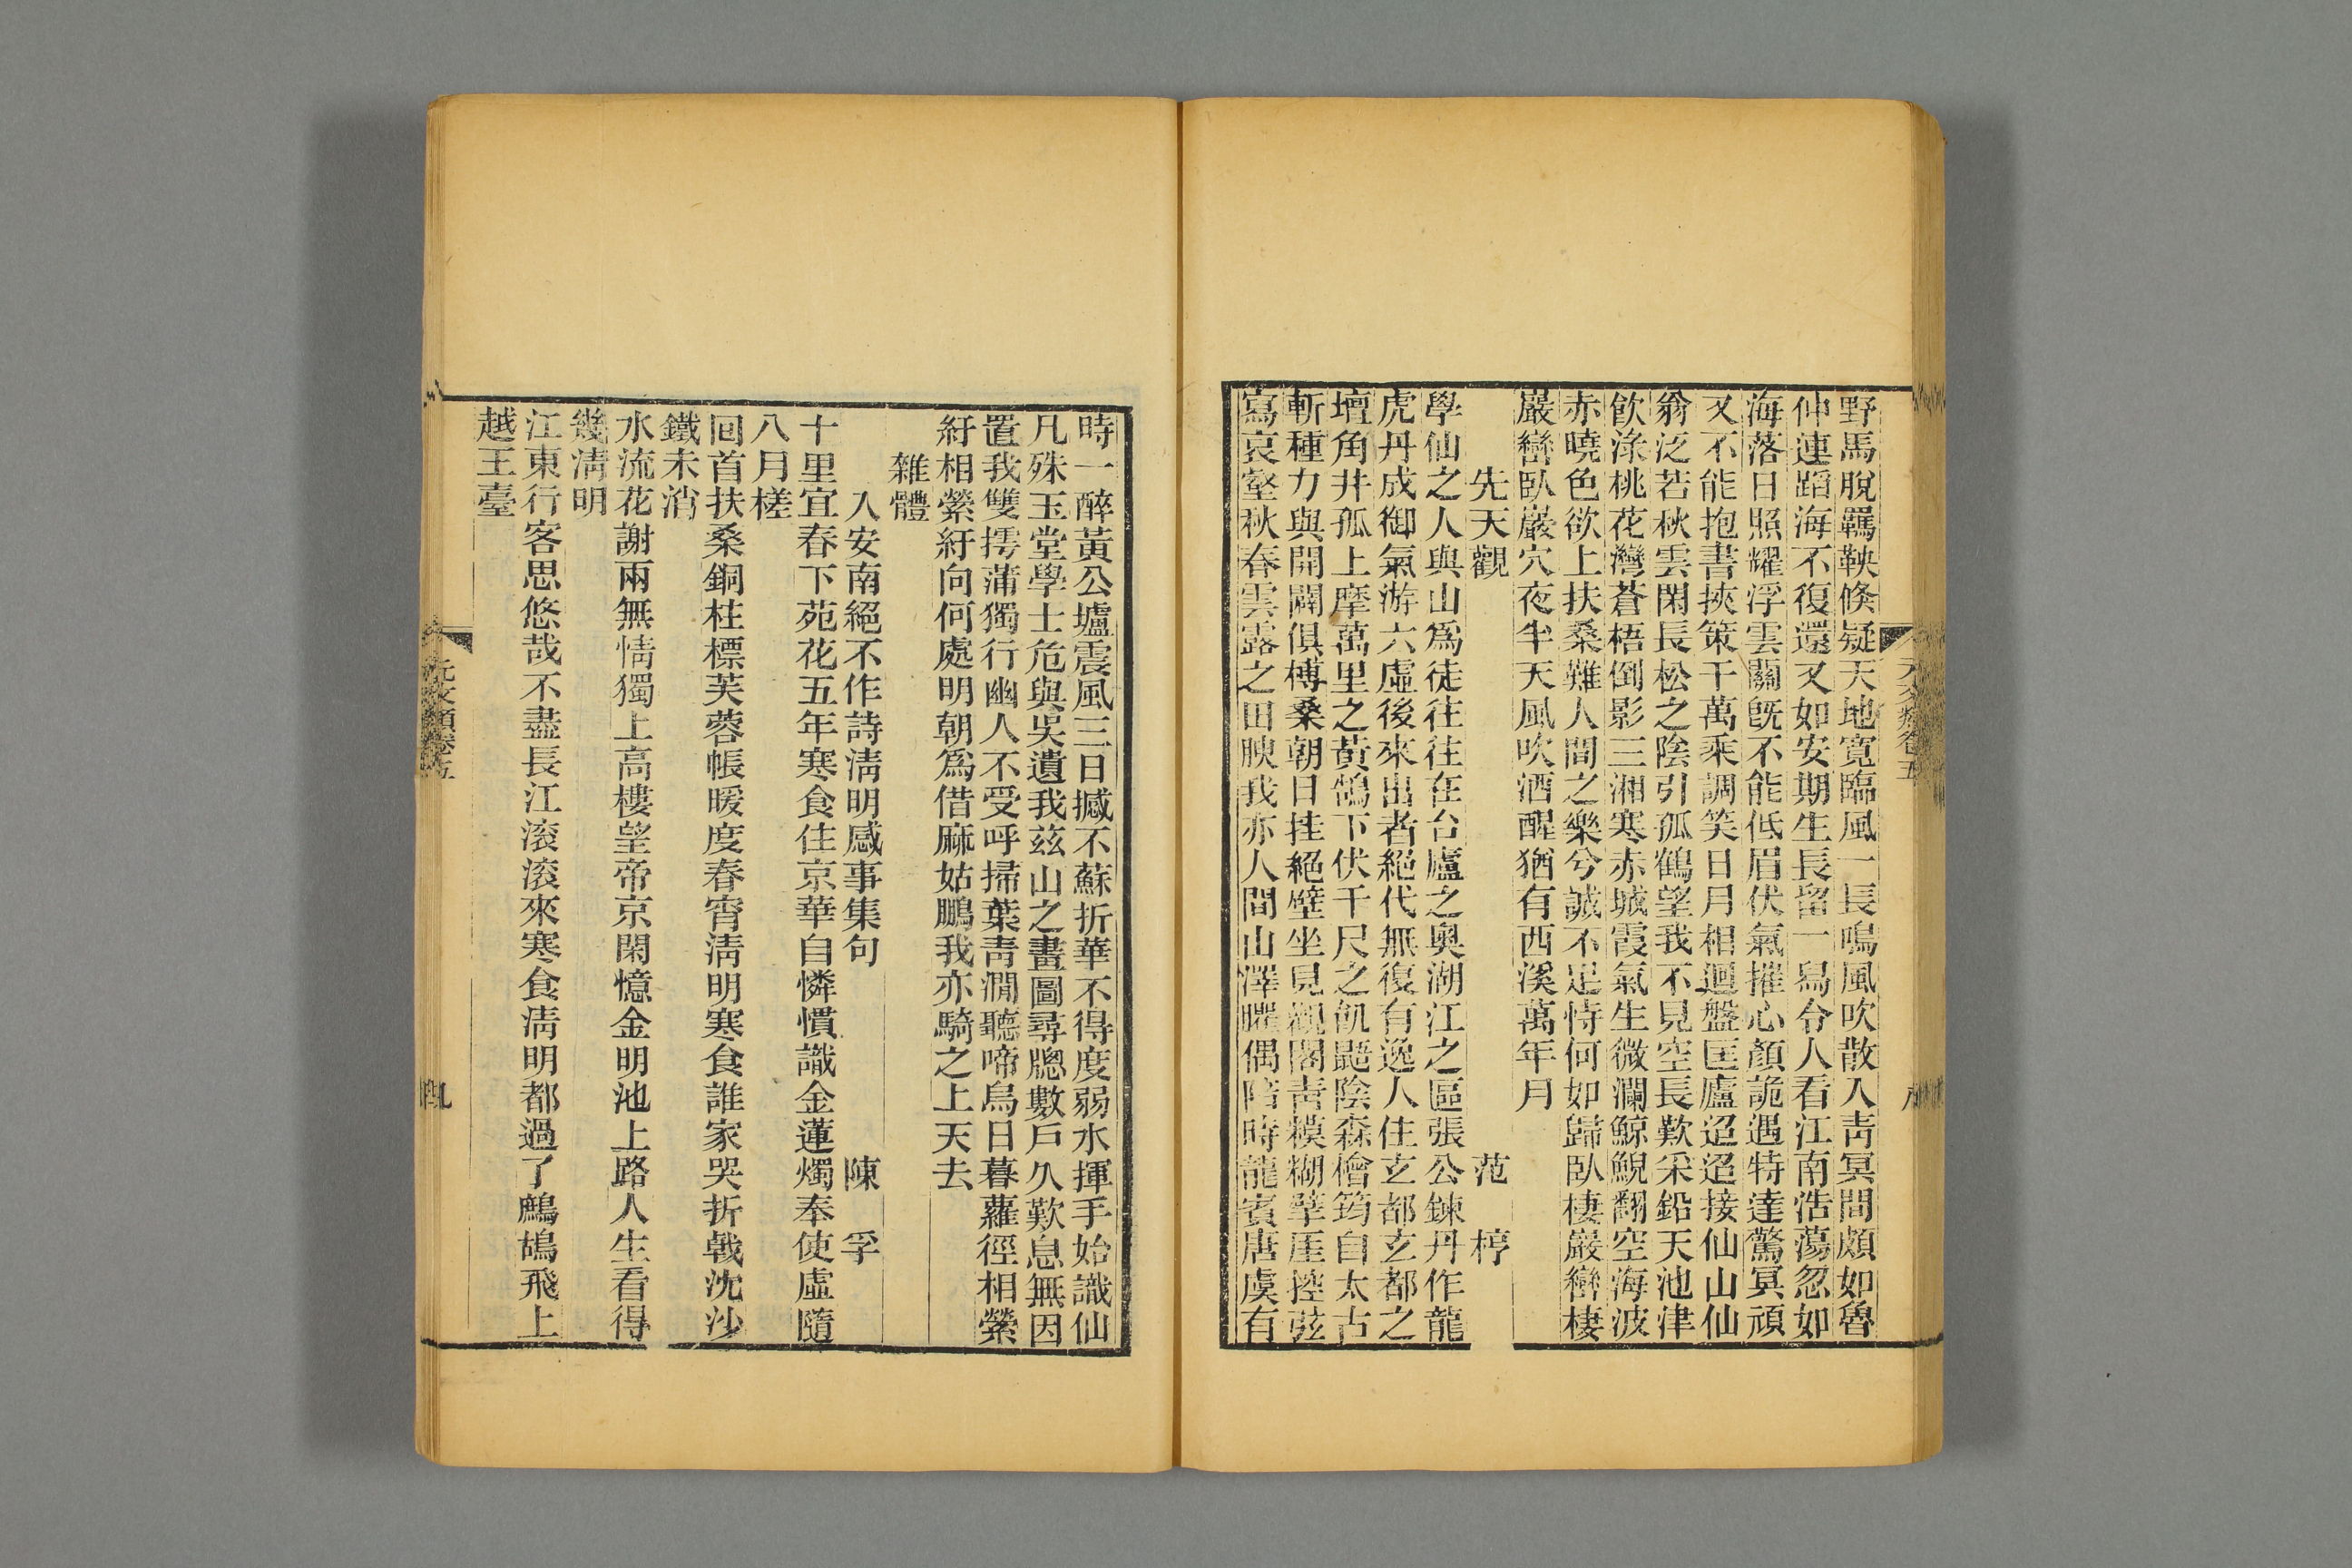 野馬脫羈鞅倏疑天地寛臨風一長鳴風吹散入靑冥間頗如魯
仲連蹈海不復還又如安期生長留一舄令人看江南浩蕩忽如
海落日照耀浮雲關旣不能低眉伏氣摧心顏詭遇特達驚冥頑
又不能抱書挾策干萬乘調笑日月相迴盤匡廬迢迢接仙山仙
翁泛若秋雲閑長松之陰引孤鶴望我不見空長歎采鉛天池津
飮淥桃花灣蒼梧倒影三湘寒赤城霞氣生微瀾鯨鯢翻空海波
赤曉色欲上扶桑難人間之樂兮誠不足恃何如歸臥棲巖巒棲
巖巒臥巖穴夜半天風吹酒醒猶有西溪萬年月
先天觀 范 梈
學仙之人與山爲徒往往在台廬之奧湖江之區張公鍊丹作龍
虎丹成御氣游六虛後來出者絕代無復有逸人住玄都玄都之
壇角井孤上摩萬里之黃鵠下伏千尺之飢鼯陰森檜筠自太古
斬種力與開闢俱榑桑朝日挂絕壁坐見觀閣靑模糊擘厓控弦
寫哀壑秋春雲露之田腴我亦人間山澤臞偶陪時龍賓唐虞有
時一醉黃公壚震風三日撼不蘇折華不得度弱水揮手始識仙
凡殊玉堂學士危與吳遺我茲山之畫圖尋牕數戶久歎息無因
置我雙㯶蒲獨行幽人不受呼掃葉靑澗聽啼烏日暮蘿徑相縈
紆相縈紆向何處明朝爲借麻姑鵬我亦騎之上天去
雜體
入安南絕不作詩淸明感事集句 陳 孚
十里宜春下苑花五年寒食住京華自憐慣識金蓮燭奉使虛隨
八月槎
回首扶桑銅柱標芙蓉帳暖度春宵淸明寒食誰家哭折戟沈沙
鐵未消
水流花謝兩無情獨上高樓望帝京閑憶金明池上路人生看得
幾淸明
江東行客思悠哉不盡長江滾滾來寒食淸明都過了鷓鴣飛上
越王臺
元文類卷五
九